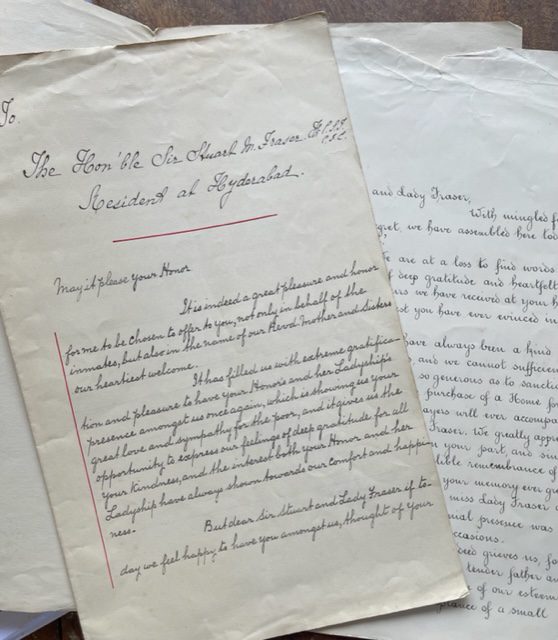 To
The Hon'ble Sir Stuart M. Fraser, K.C.S.I.
C.I.E.
Resident at Hyderabad.
May it please your Honor
It is indeed a great pleasure and honor
for me to be chosen to offer to you, not only in behalf of the
inmates, but also in the name of our Revd Mother and Sisters
our heartiest welcome.
It has filled us with extreme gratifica-
tion and pleasure to have your Honor's and her Ladyship's
presence amongst us once again, which is showing us your
great love and sympathy for the poor, and it gives us the
opportunity to express our feelings of deep gratitude for all
your kindness, and the interest both your Honor and her
Ladyship have always shown towards our comfort and happi-
ness.
But dear Sir Stuart and Lady Fraser if to-
day we feel happy to have you amongst us, thought of your
and Lady Fraser,
With mingled
we have assembled here
are at a loss to find words
deep gratitude and heartfelt
we have received at your
you have ever evinced in
have always been a kind
and we cannot
so generous as to
purchase of a Home for
will ever
Fraser. We greatly
your part, and
remembrance of
your memory ever
miss Lady Fraser
presence was
occasions.
grieves us, for
tender father
of our esteem
of a small